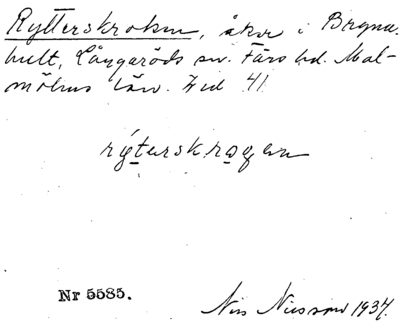 Rytterskroken, åker i Brynu-
hult, Långaröds sn. Färs hd. Mal-
möhus län. Hid 41.
rýterskrogen
Nr 5585.
Nils Nilsson 1937.